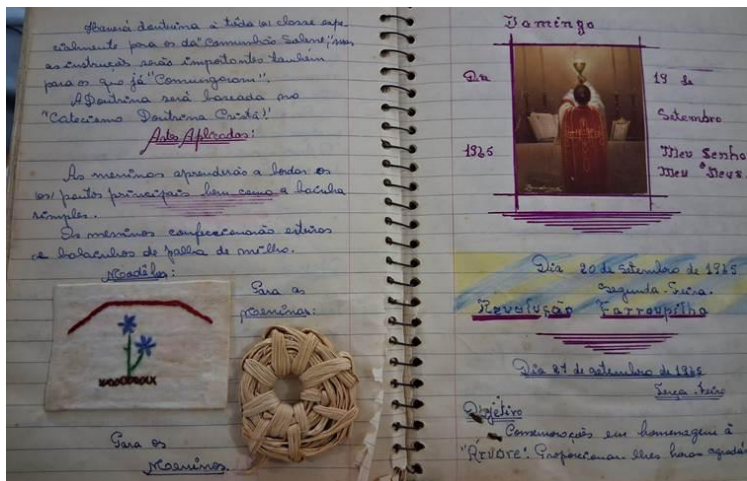 Haverá doutrina a toda a classe espe-
cialmente para os da "Comunhão Solene", mas
as instruções serão importantes também
para os que já "Comungaram".
A Doutrina será baseada no
"Catecismo Doutrina Cristã".
Artes Aplicadas:
As meninas aprenderão a bordar os
pontos principais bem como a bainha
simples.
Os meninos confeccionarão esteiras
e balainhos de palha de milho.
Modêlo:
Para as
Meninas:
Para os
Meninos.
Domingo
Dia 19 de
Setembro
1965 Meu Senhor
Meu Deus.
Dia 20 de setembro de 1965
Segunda-Feira.
Revolução Farroupilha
Dia 21 de setembro de 1965
Terça-Feira
Objetivo
Comemorações em homenagem à
"Árvore". Proporcionar-lhes horas agradá